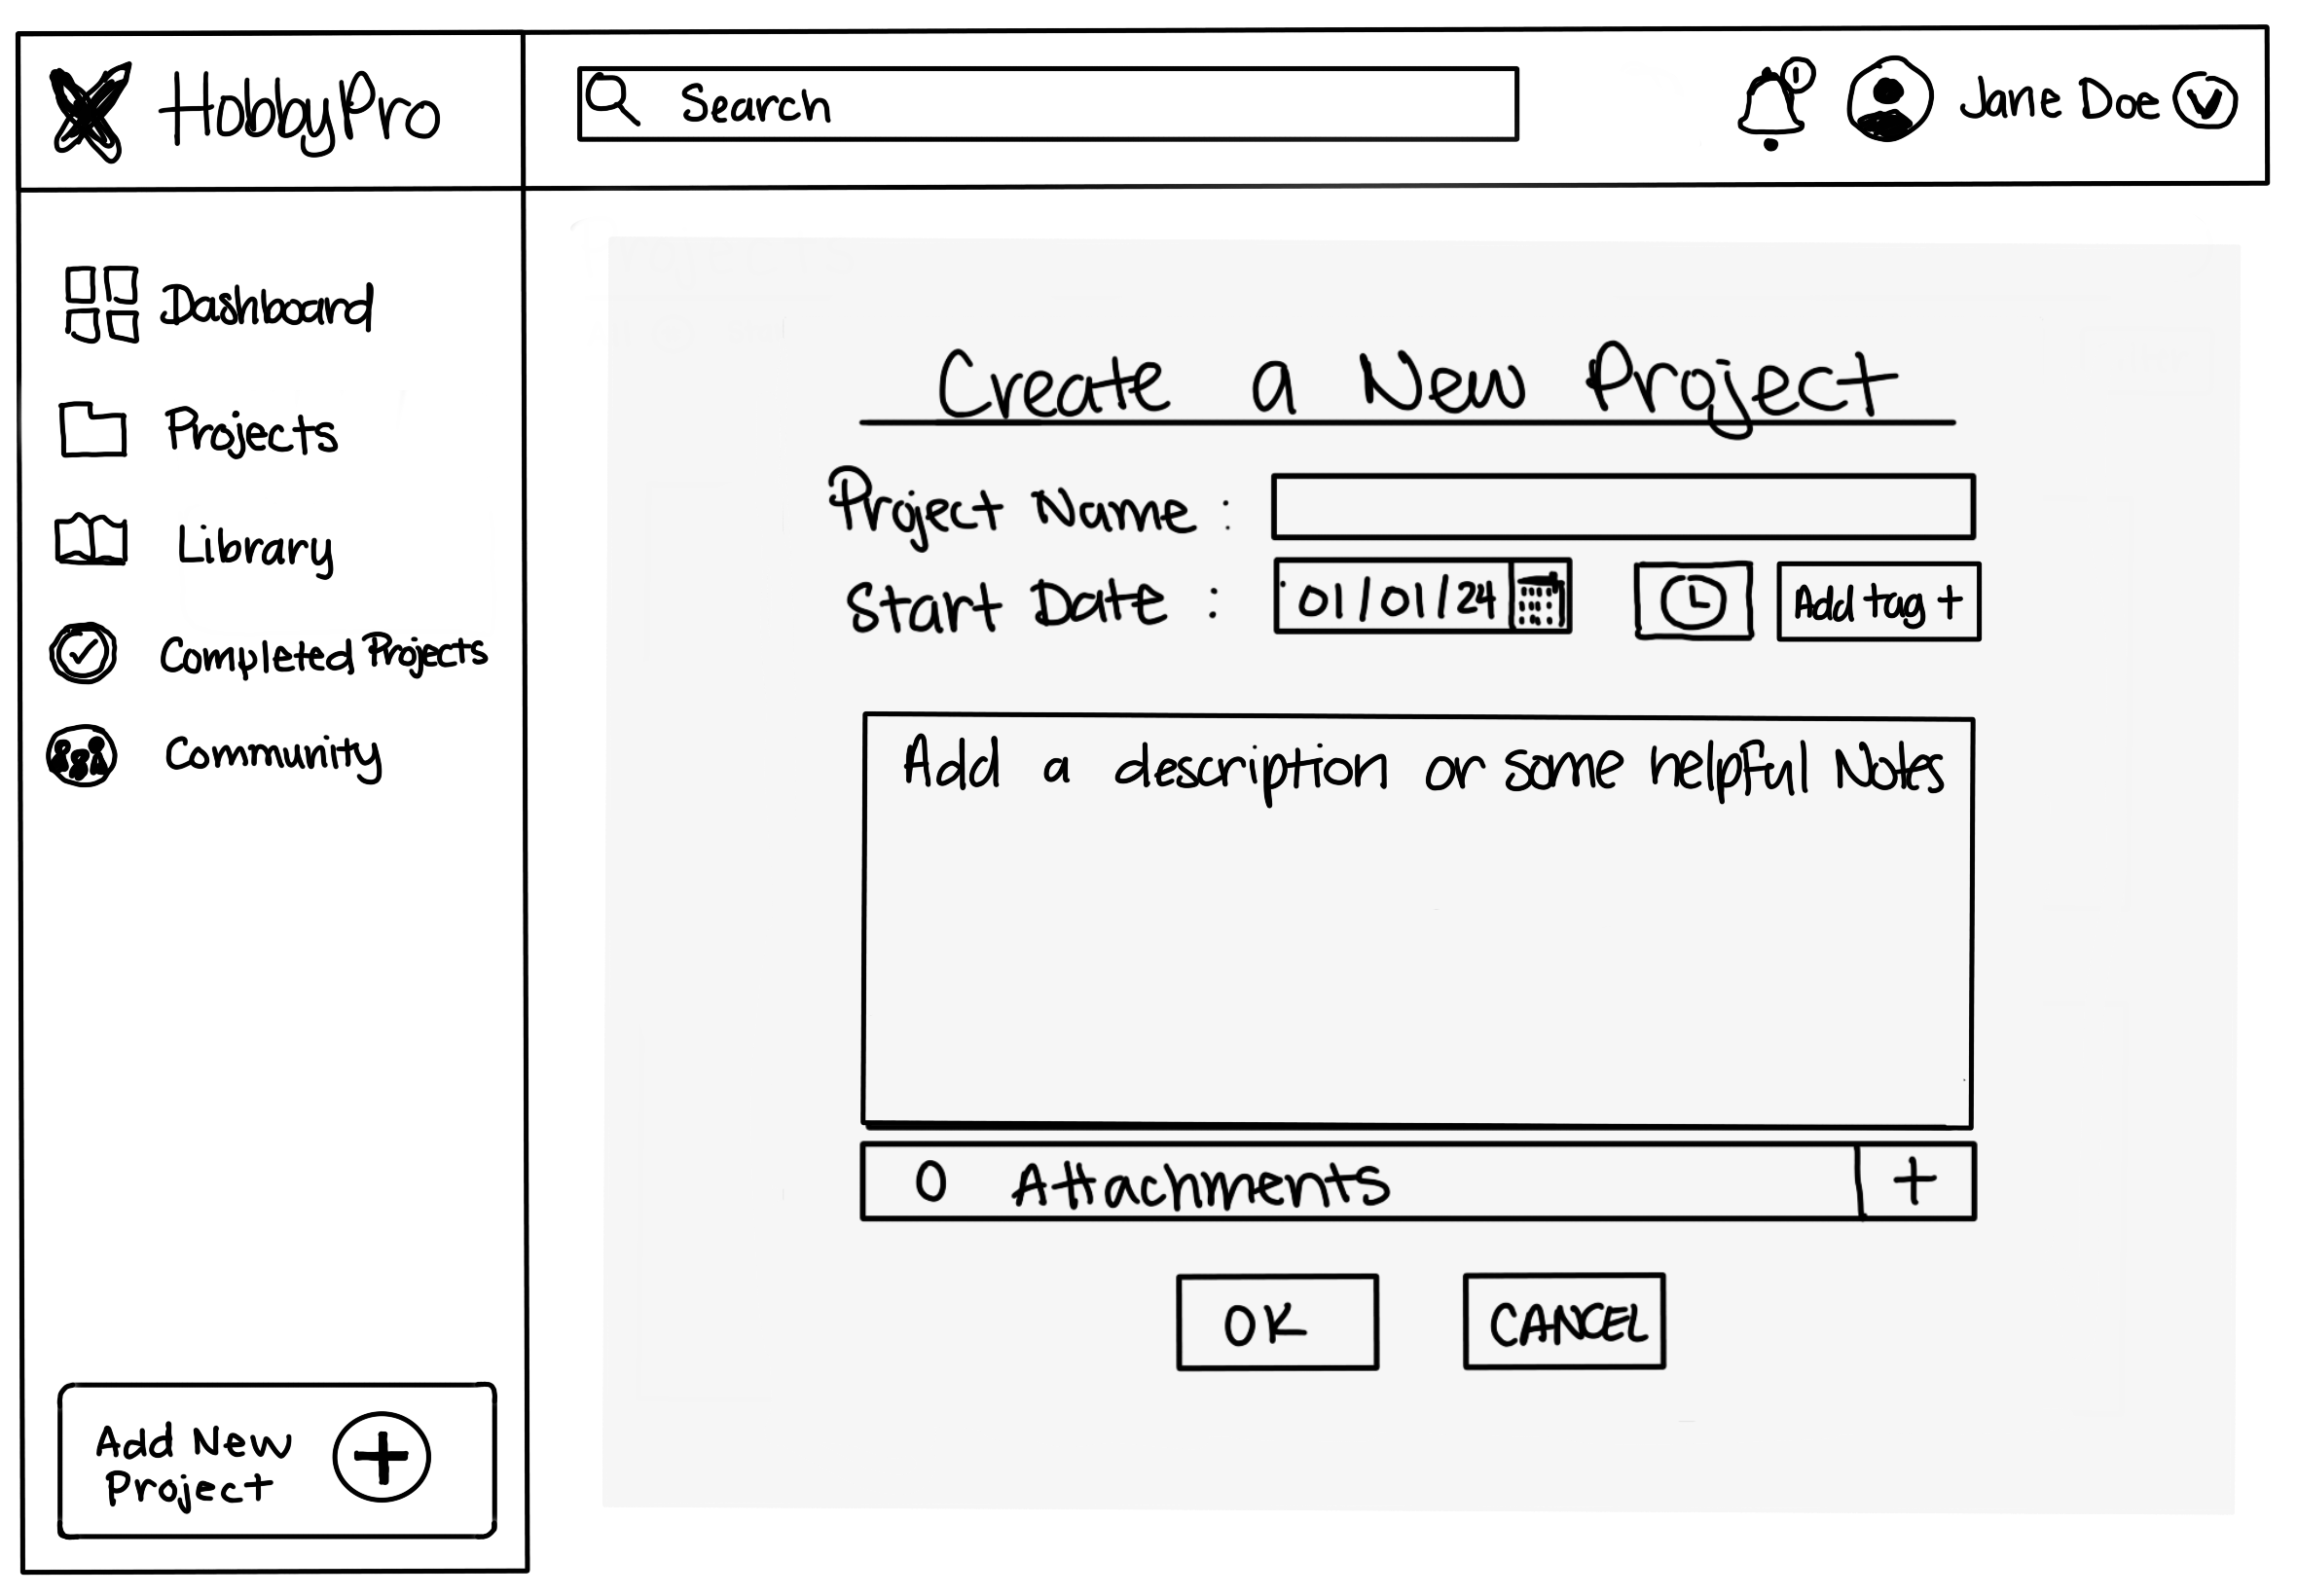 HobbyPro
Search
Jane Doe
Dashboard
Projects
Library
Completed Projects
Community
Add New
Project
Create a New Project
Project Name :
Start Date : 01/01/24 Add tag +
Add a description or some helpful Notes
0 Attachments +
OK CANCEL